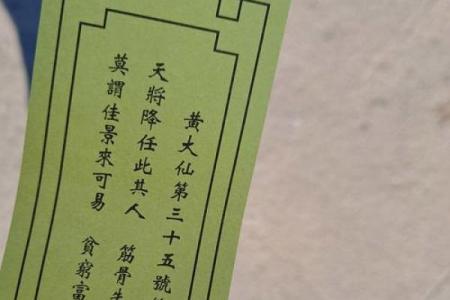 黃大仙第三十五號
天將降任此其人 筋骨
莫謂佳景來可易 貧窮富